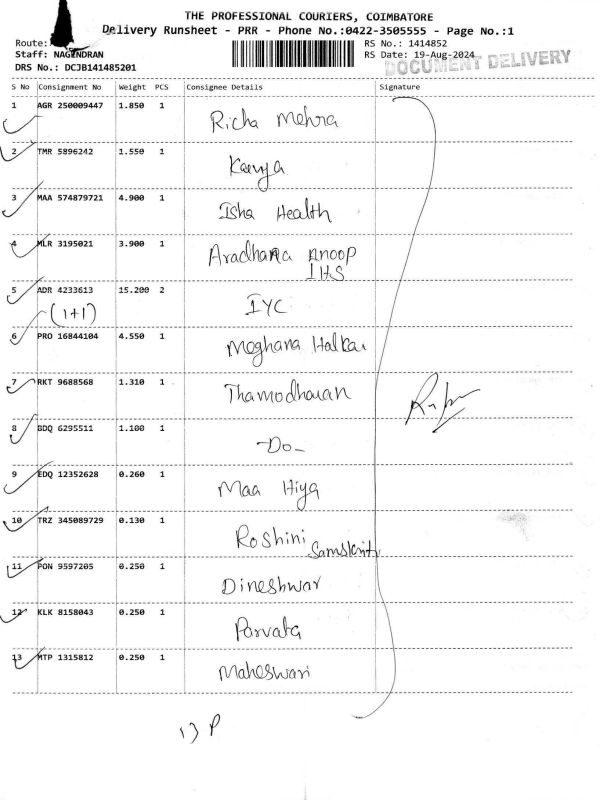 THE PROFESSIONAL COURIERS, COIMBATORE
Delivery Runsheet - PRR - Phone No.:0422-3505555 - Page No.:1
Route:
RS No.: 1414852
Staff: NAGENDRAN
RS Date: 19-Aug-2024
DRS No.: DCJB141485201
DOCUMENT DELIVERY
S No Consignment No Weight PCS Consignee Details Signature
1 AGR 250009447 1.850 1 Richa Mehra
2 TMR 5896242 1.550 1 Kavya
3 MAA 574879721 4.900 1 Isha Health
4 MLR 3195021 3.900 1 Aradhana Anoop
IHS
5 ADR 4233613 15.200 2 IYC
(1+1)
6 PRO 16844104 4.550 1 Meghana Halkai
7 RKT 9688568 1.310 1 Thamodharan
8 BDQ 6295511 1.100 1 -Do-
9 EDQ 12352628 0.260 1 Maa Hiya
10 TRZ 345089729 0.130 1 Roshini
Samskriti
11 PON 9597205 0.250 1 Dineshwar
12 KLK 8158043 0.250 1 Parvata
13 MTP 1315812 0.250 1 Maheswari
13 P